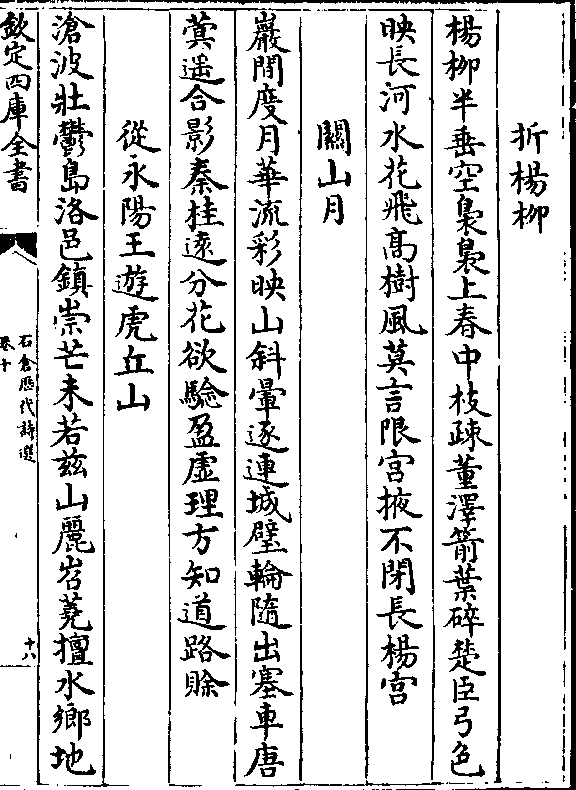 折楊柳
楊柳半垂空裊裊上春中枝疎董澤箭葉碎楚臣弓色
映長河水花飛髙樹風莫言限宮掖不閉長楊宫
關山月
巖閒度月華流彩映山斜暈逐連城璧輪隨出塞車唐
蓂遥合影秦桂逺分花欲驗盈虚理方知道路賖
從永陽王遊虎丘山
滄波壯鬱島洛邑鎮崇芒未若兹山麗岧嶤擅水鄉地
欽定四庫全書
石倉歴代詩選
卷十
十六